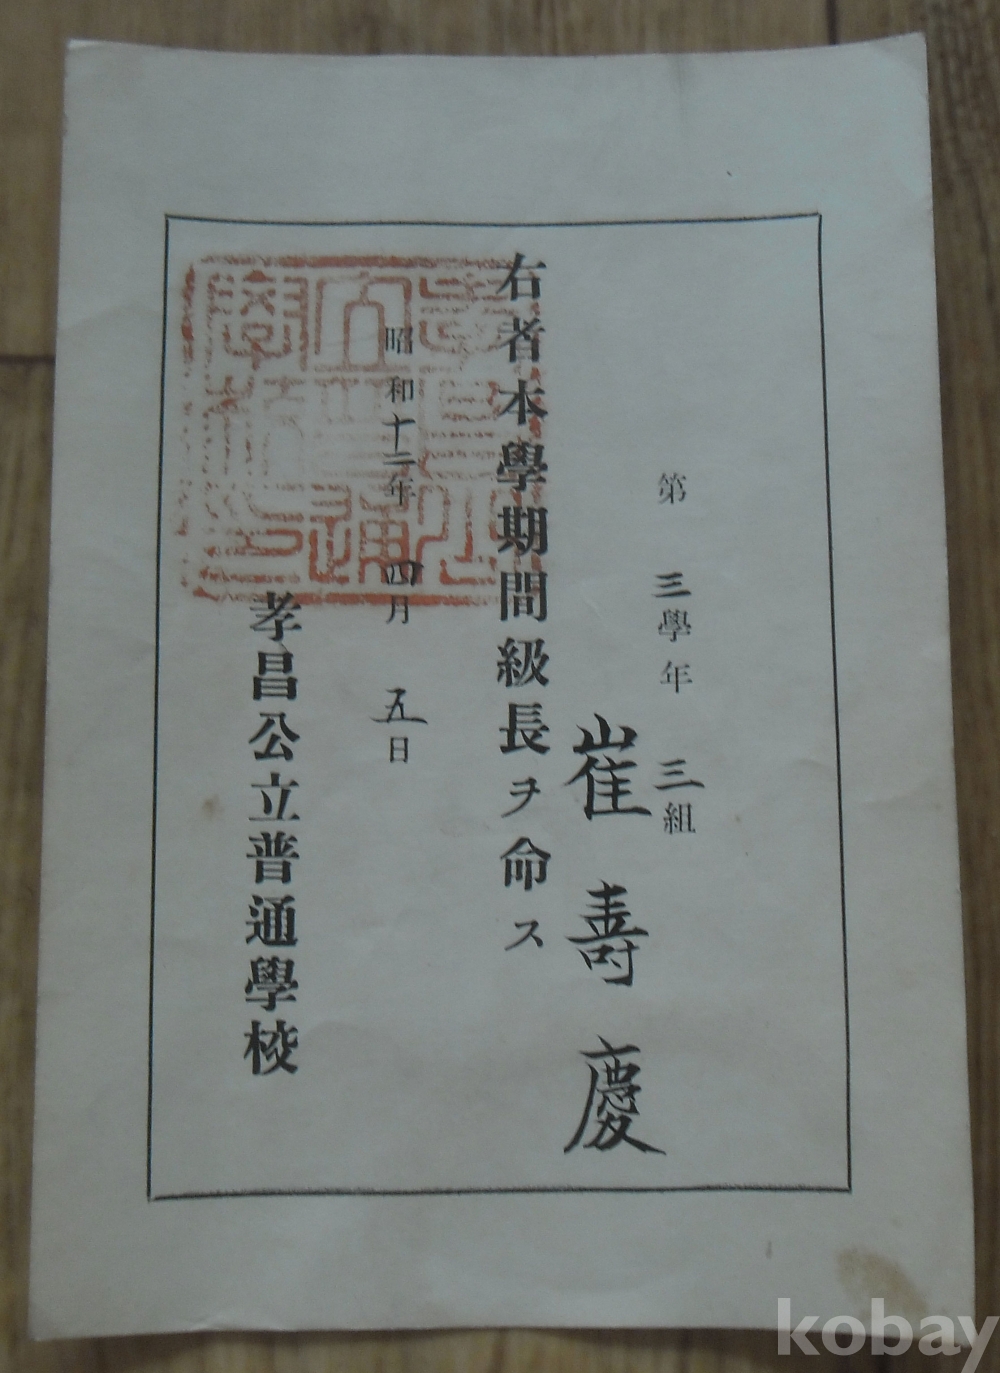 第三學年三組
崔壽慶
右者本學期間級長ヲ命ス
昭和十二年四月五日
孝昌公立普通學校
kobay